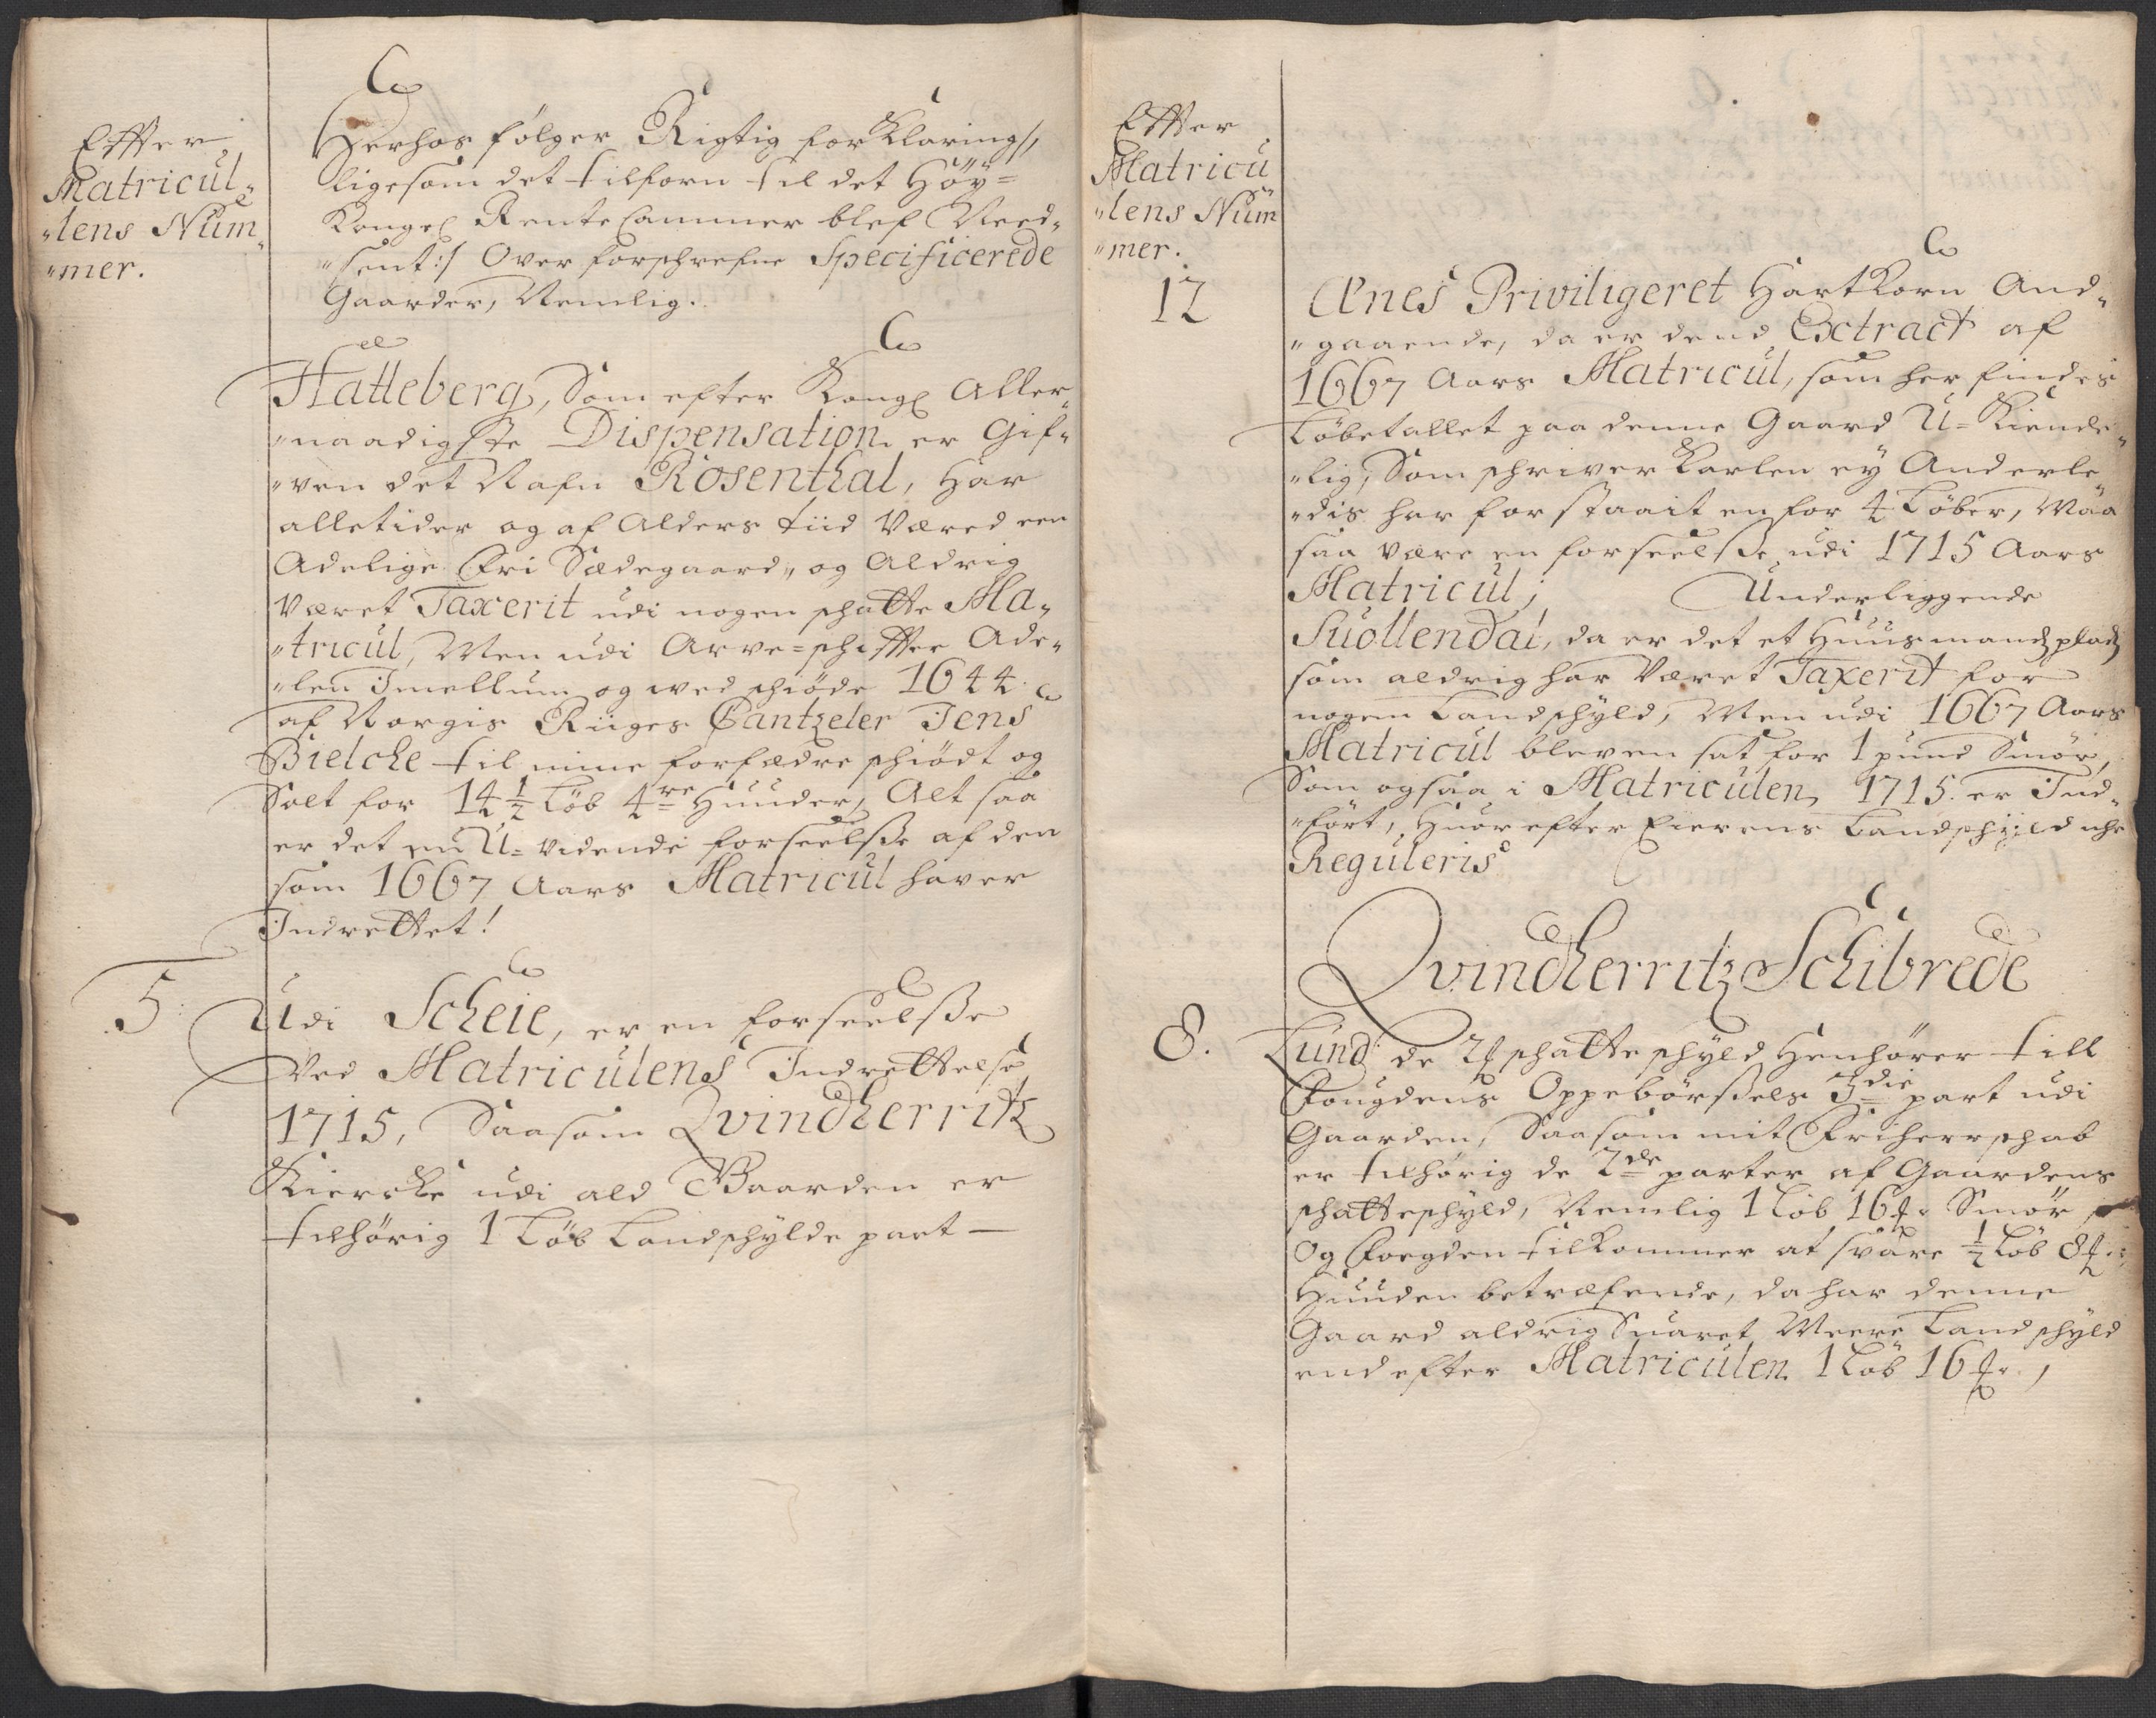 Efter
Matricul„
„lens Num„
„mer.
Herhos følger Rigtig forKlaring /,
ligesom det tilforn til det Höÿ=
Kongel Rente Cammer blef Need„
„sent :/ Over forschrefne Specificerede
Gaarder, Nemlig.
Hatteberg, Som efter Kongl Aller„
„naadigste Dispensation er Gif„
„ven det Nafn Rosenthal, Har
alletider og af Alders tiid Været een
Adelige Fri Sædegaard, og Aldrig
Været Taxerit udi nogen schatte Ma„
„tricul, Men udi Arve=schifter Ade„
„len Imellum og wed schiöde 1644
af Norgis Riiges Cantzeler Jens
Bielche til mine forfædre schiödt og
Solt for 14 1/2 Löb 4re Huuder, Alt saa
er det en U=vidende forseelsse af den
som 1667 Aars Matricul haver
Indrettet!
5
Udi Scheie, er en forseelsse
Ved Matriculens Indrettelse
1715, Saasom Qvindherritz
Kiercke udi ald Gaarden er
tilhörig 1 Löb Landschylde part —
Efter
Matricu
„lens Num
„mer.
12
Ænes Priviligeret Hartkorn And„
„gaaende, da er dend Extract af
1667 Aars Matricul, som her findes
Löbetallet paa denne Gaard U=Kiende„
„lig, Som schriver Karlen eÿ Anderle„
„dis har forstaait en for 4 Löber, Maa
saa være en forseelsse udi 1715 Aars
Matricul; Underliggende
Suollendal, da er det et Huusmandz pladz
som aldrig har Været Taxerit for
nogen Landschyld, Men udi 1667 Aars
Matricul bleven sat for 1 pund Smör,
Som ogsaa i Matriculen 1715 er Ind„
„fört, Huor efter Eierens Landschyld
Reguleris
Qvindherritz Schibrede
8.
Lund de schatte schyld Henhører till
Fougdens Oppebörssels 3die part udi
Gaarden, Saasom mit Friherrschab
er tilhörig de 2de parter af Gaardens
schatteschyld, Nemlig 1 Löb 16 Smör
Og Foegden tilkommer at svare 1/2 Löb 8
Huuden betræfende, da har denne
Gaard aldrig Suaret Meere Landschyld
end efter Matriculen 1 Löb 16